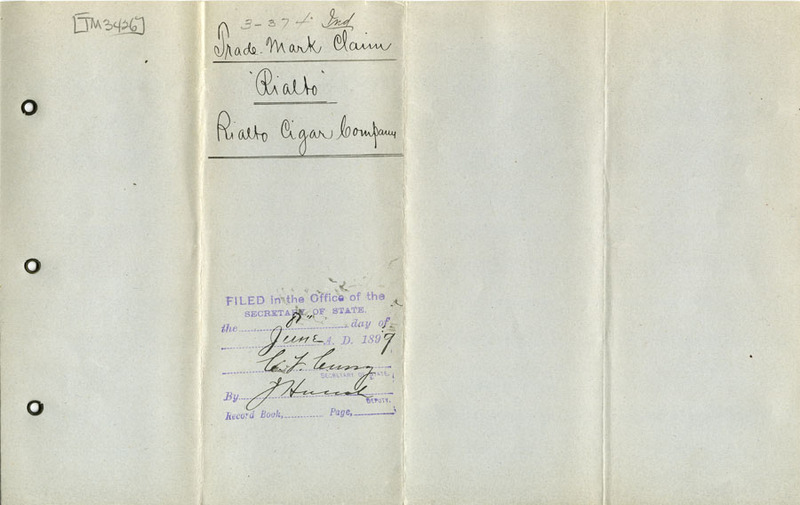 [TM3426]
3-374 Ind
Trade Mark Claim
"Rialto"
Rialto Cigar Company
FILED in the Office of the
SECRETARY OF STATE.
the 8th day of
June A. D. 1899
C. F. Curry
SECRETARY OF STATE.
By J Hoesch
DEPUTY.
Record Book, Page,